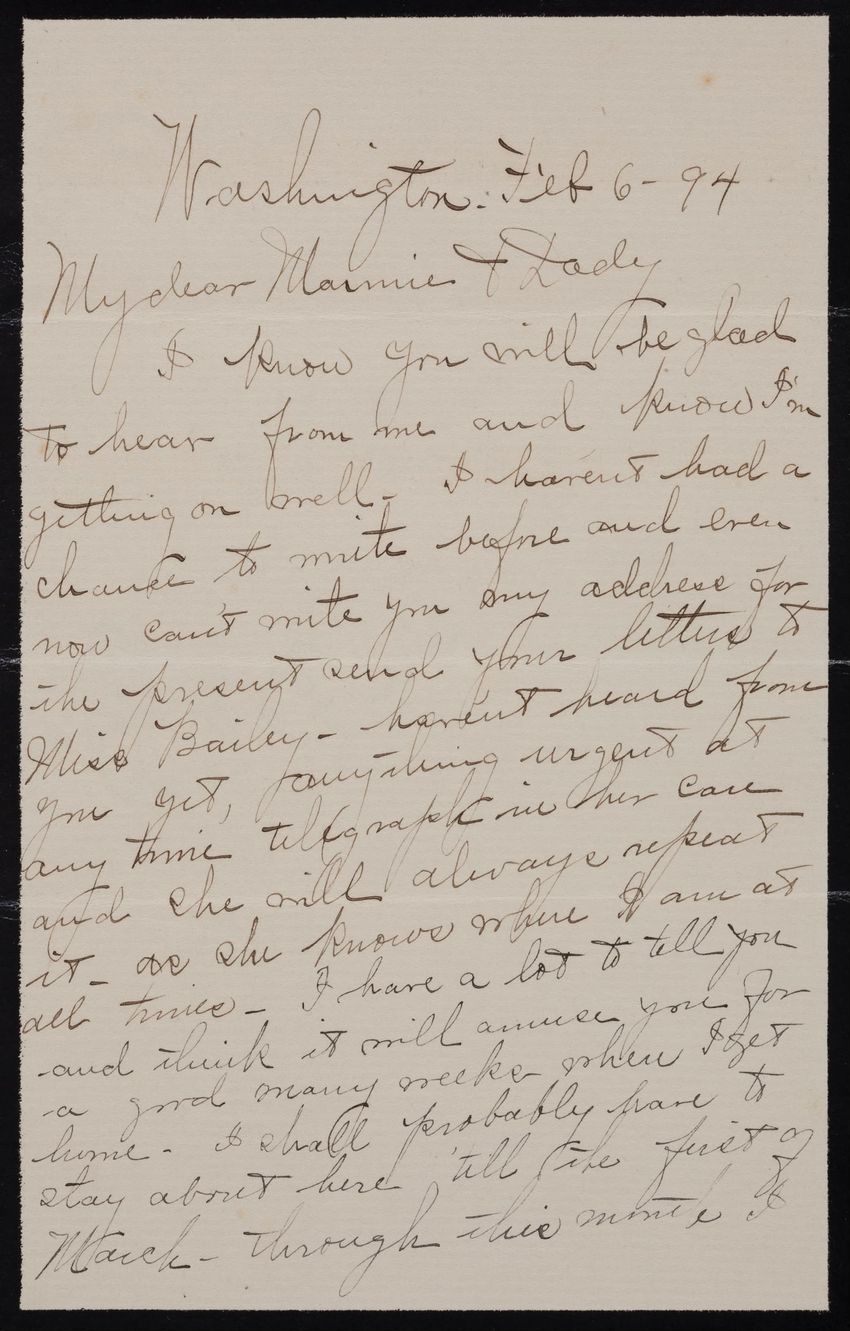 Washington. Feb 6 - 94
My dear Mamie & Dady
I know you will be glad
to hear from me and know I'm
getting on well - I haven't had a
chance to write before and even
now can't write you my address for
the present send your letters to
Miss Bailey - haven't heard from
you yet, anything urgent at
any time telegraph in her care
and she will always repeat
it - as she knows where I am at
all times - I have a lot to tell you
and think it will amuse you for
a good many weeks when I get
home - I shall probably have to
stay about here 'till the first of
March - through this month I